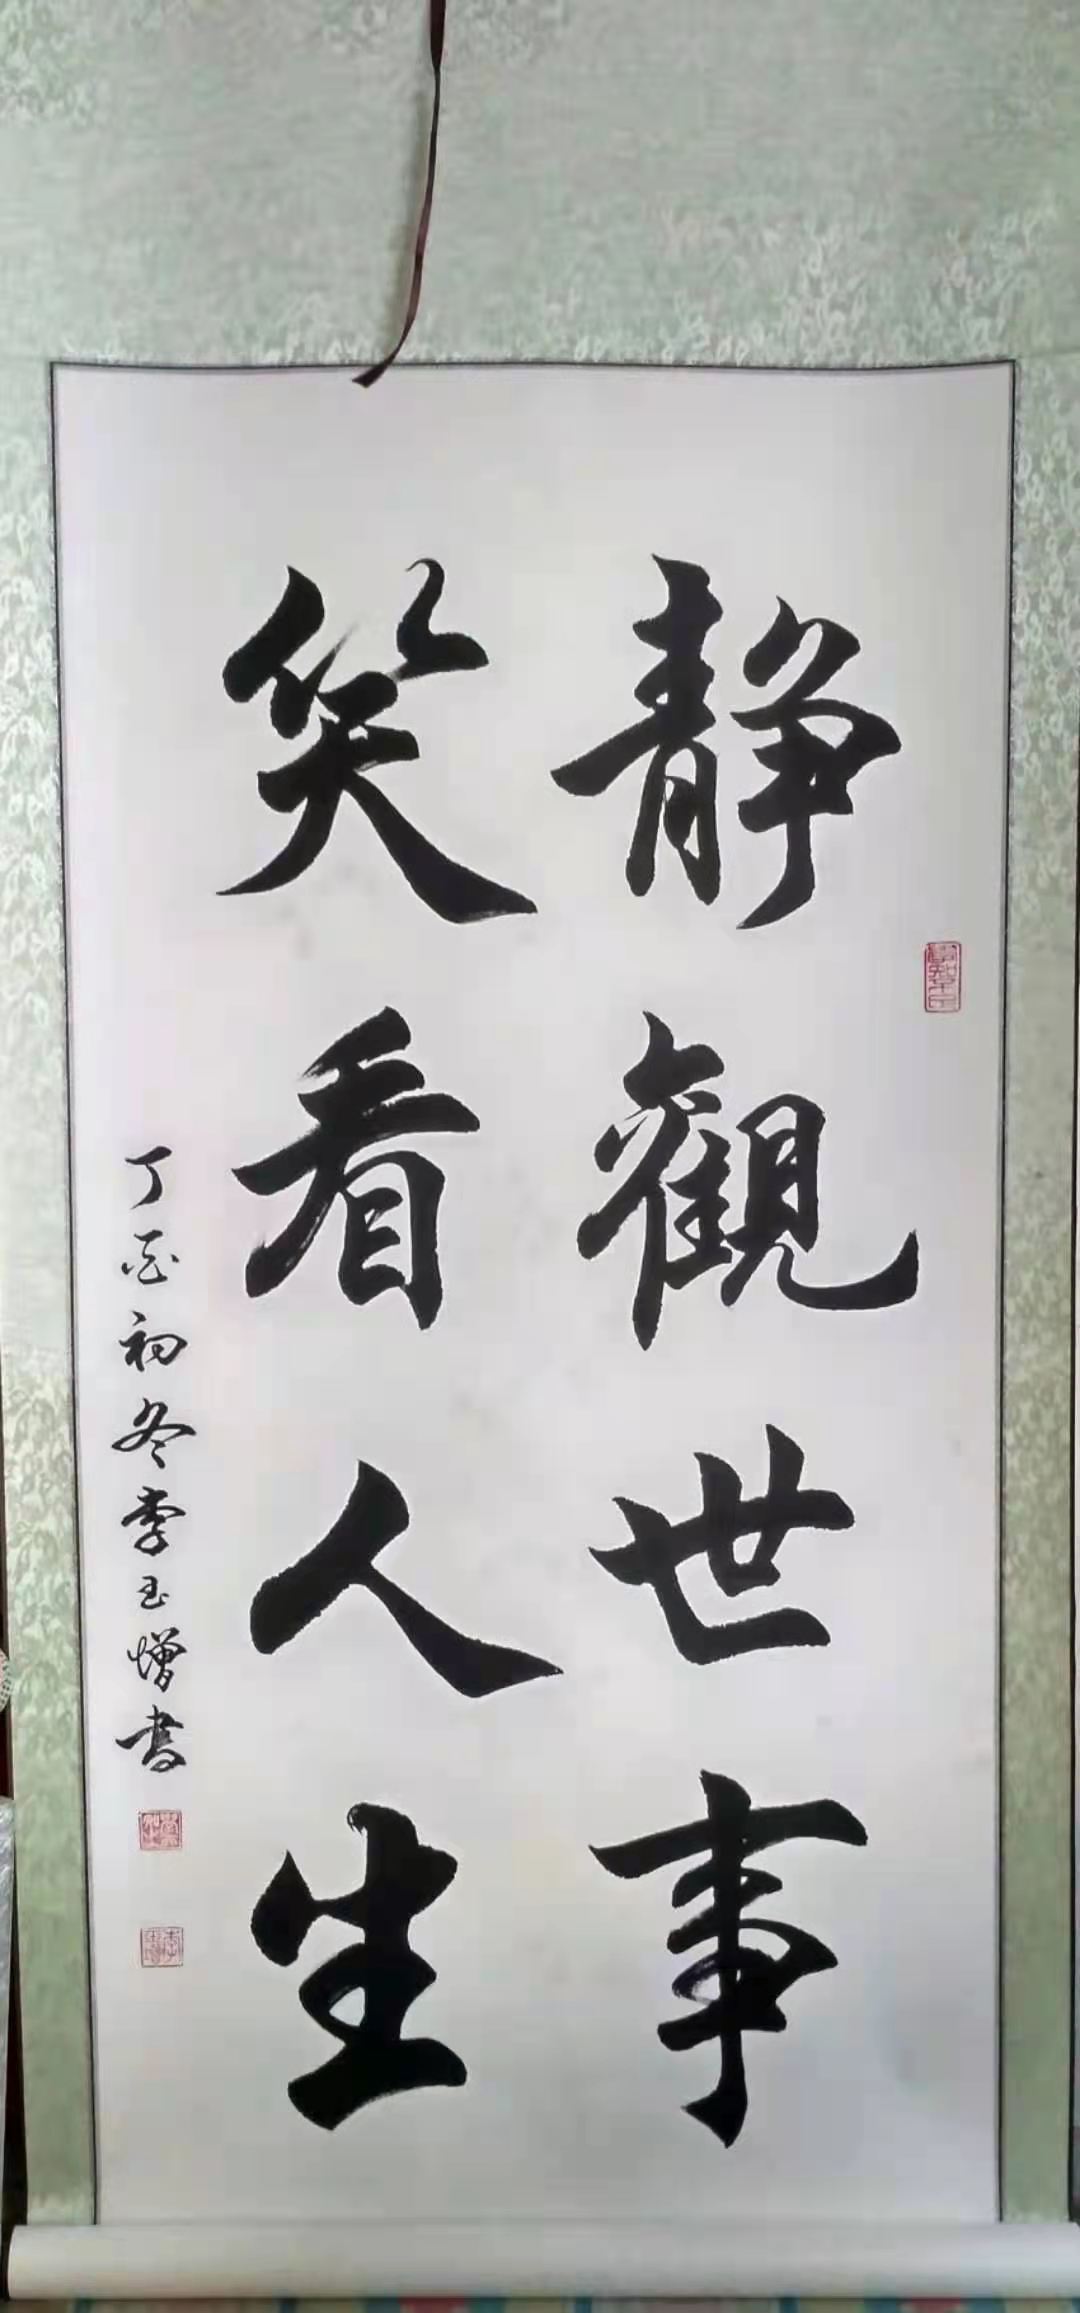 靜觀世事
笑看人生
丁酉初冬李玉增書